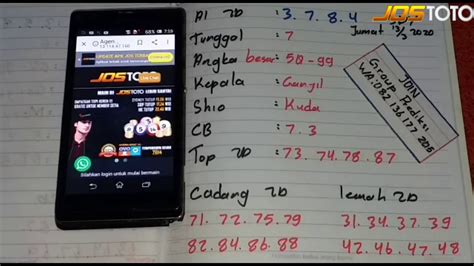 JOSTOTO
AI 2D : 3. 7. 8. 4
Jumat
2020
Tunggal : 7
Angka besar: 50-99
Kepala : Ganjil
Shio : Kuda
CB : 7. 3
Top 2D : 73. 74. 78. 87
JON
Group Prediksi
WA: 082 136 177 206
Cadang 2D
71. 72. 75. 79
82. 84. 86. 88
lemah 2D
31. 34. 37. 39
42. 46. 47. 48
7:59
Agen
JOSTOTO
Live Chat
JOSTOTO
2014
Silahkan login untuk mulai bermain